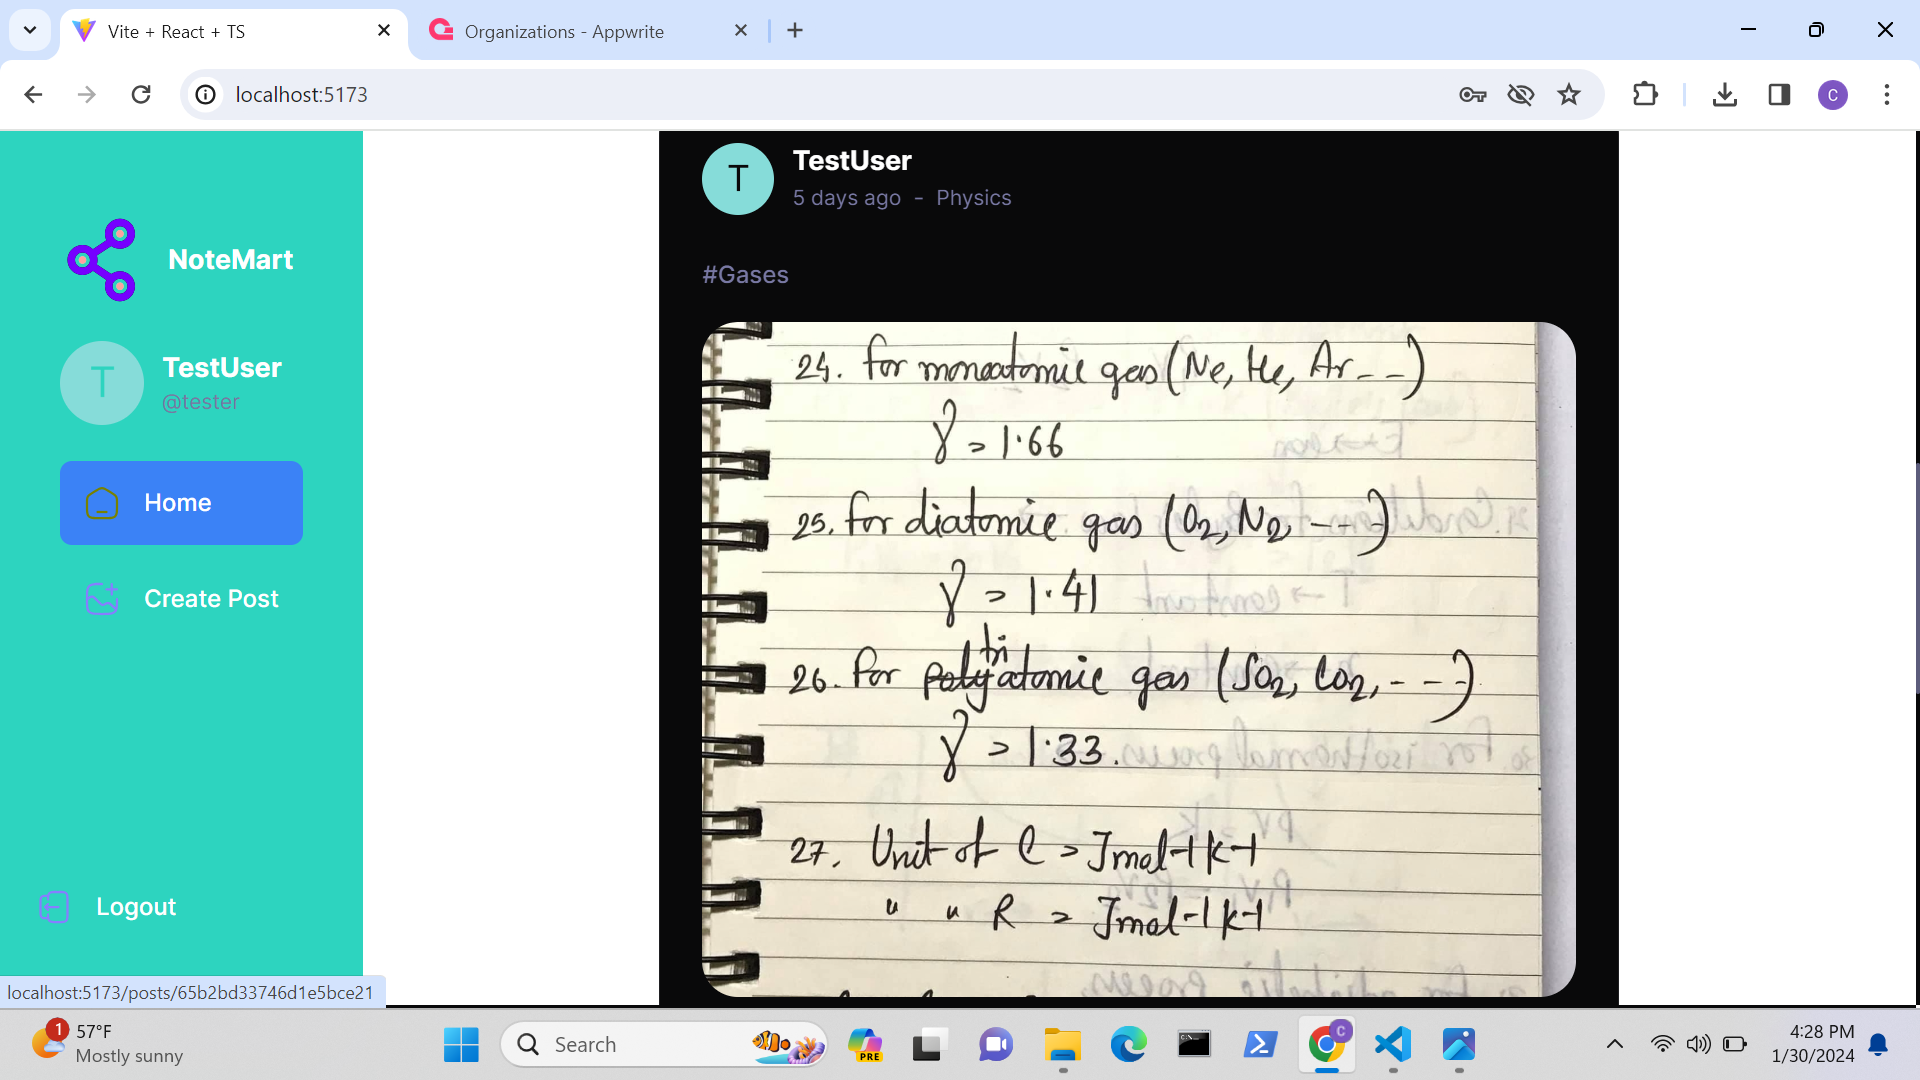 Vite + React + TS
Organizations - Appwrite
localhost:5173
C
NoteMart
T
TestUser
@tester
Home
Create Post
Logout
localhost:5173/posts/65b2bd33746d1e5bce21
T
TestUser
5 days ago - Physics
#Gases
24. for monoatomic gas (Ne, He, Ar - -)
γ = 1.66
25. for diatomic gas (O2, N2, - - -)
γ = 1.41
tri
26. For polyatomic gas (SO2, CO2, - - -)
γ = 1.33.
27. Unit of C = Jmol-1 k-1
" " R = Jmol-1 k-1
1
57°F
Mostly sunny
Search
PRE
C
4:28 PM
1/30/2024